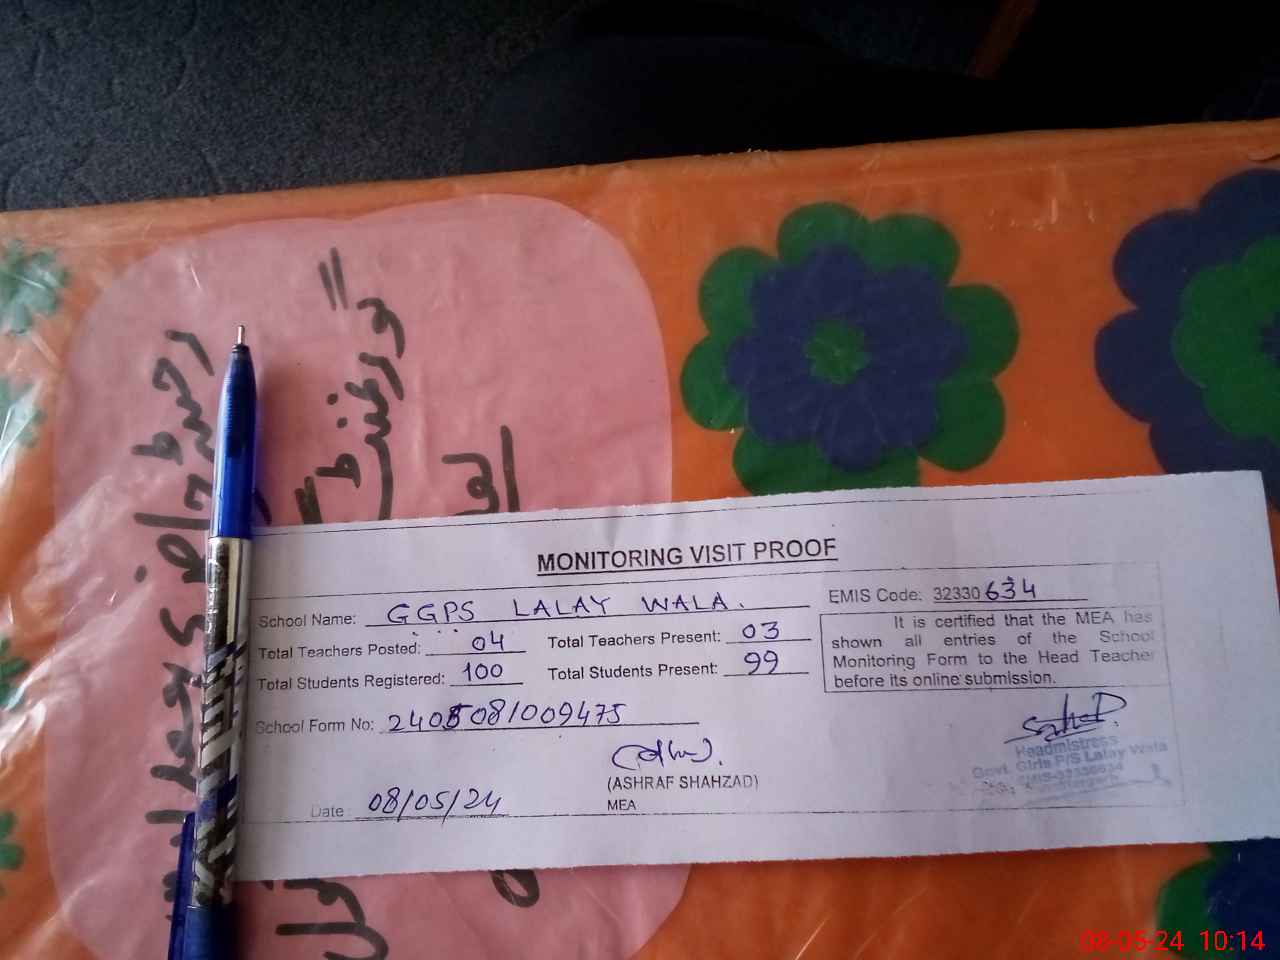 رجسٹر حاضری
گورنمنٹ
MONITORING VISIT PROOF
School Name: GGPS LALAY WALA.
EMIS Code: 32330634
Total Teachers Posted: 04 Total Teachers Present: 03
Total Students Registered: 100 Total Students Present: 99
It is certified that the MEA has
shown all entries of the School
Monitoring Form to the Head Teacher
before its online submission.
School Form No: 2405081009475
(ASHRAF SHAHZAD)
MEA
Date: 08/05/24
Headmistress
Govt. Girls P/S Lalay Wala
08-05-24 10:14